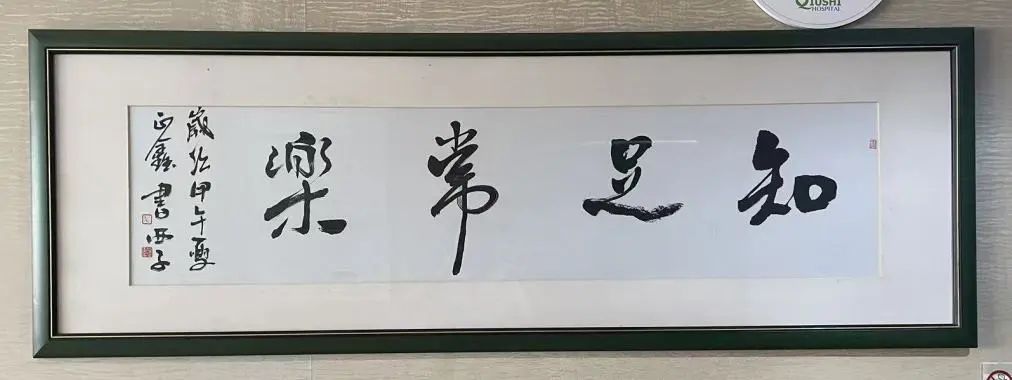 知足常樂
歲次甲午夏
正鑫書西子
QIUSHI
HOSPITAL